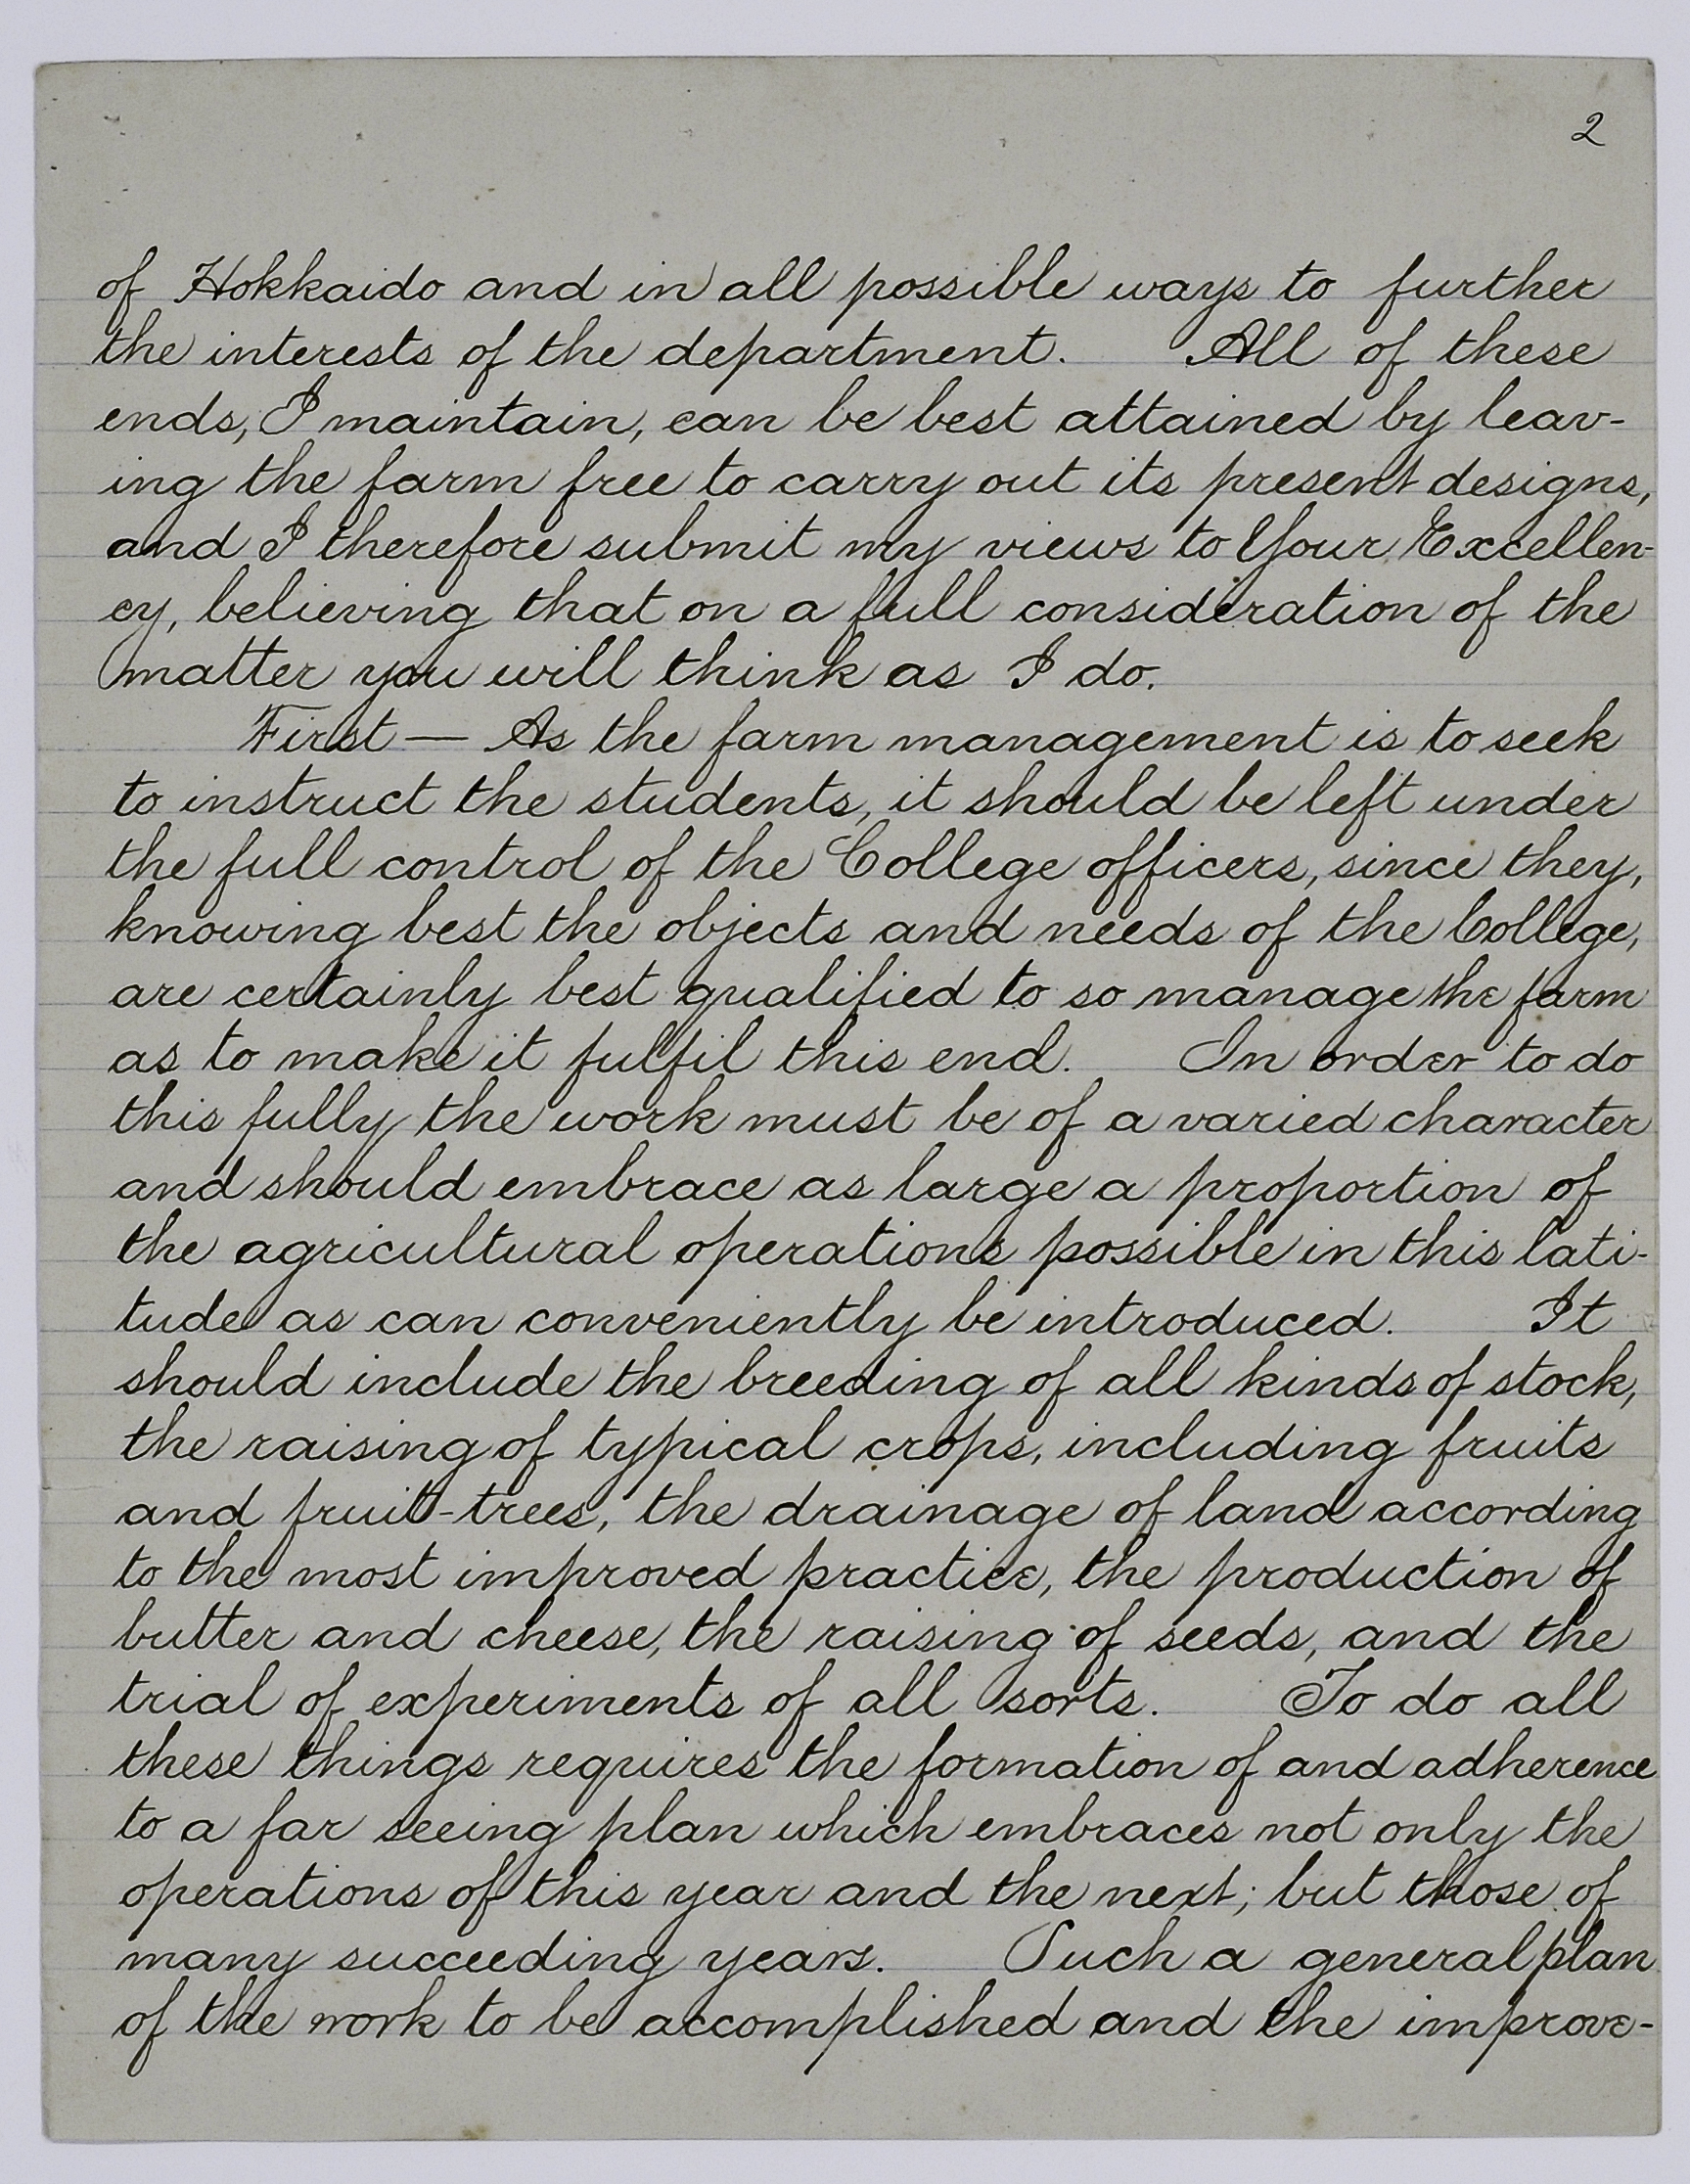 2
of Hokkaido and in all possible ways to further
the interests of the department. All of these
ends, I maintain, can be best attained by leav-
ing the farm free to carry out its present designs,
and I therefore submit my views to Your Excellen-
cy, believing that on a full consideration of the
matter you will think as I do.
First — As the farm management is to seek
to instruct the students, it should be left under
the full control of the College officers, since they,
knowing best the objects and needs of the College,
are certainly best qualified to so manage the farm
as to make it fulfil this end. In order to do
this fully the work must be of a varied character
and should embrace as large a proportion of
the agricultural operations possible in this lati-
tude as can conveniently be introduced. It
should include the breeding of all kinds of stock,
the raising of typical crops, including fruits
and fruit-trees, the drainage of land according
to the most improved practice, the production of
butter and cheese, the raising of seeds, and the
trial of experiments of all sorts. To do all
these things requires the formation of and adherence
to a far seeing plan which embraces not only the
operations of this year and the next; but those of
many succeeding years. Such a general plan
of the work to be accomplished and the improve-